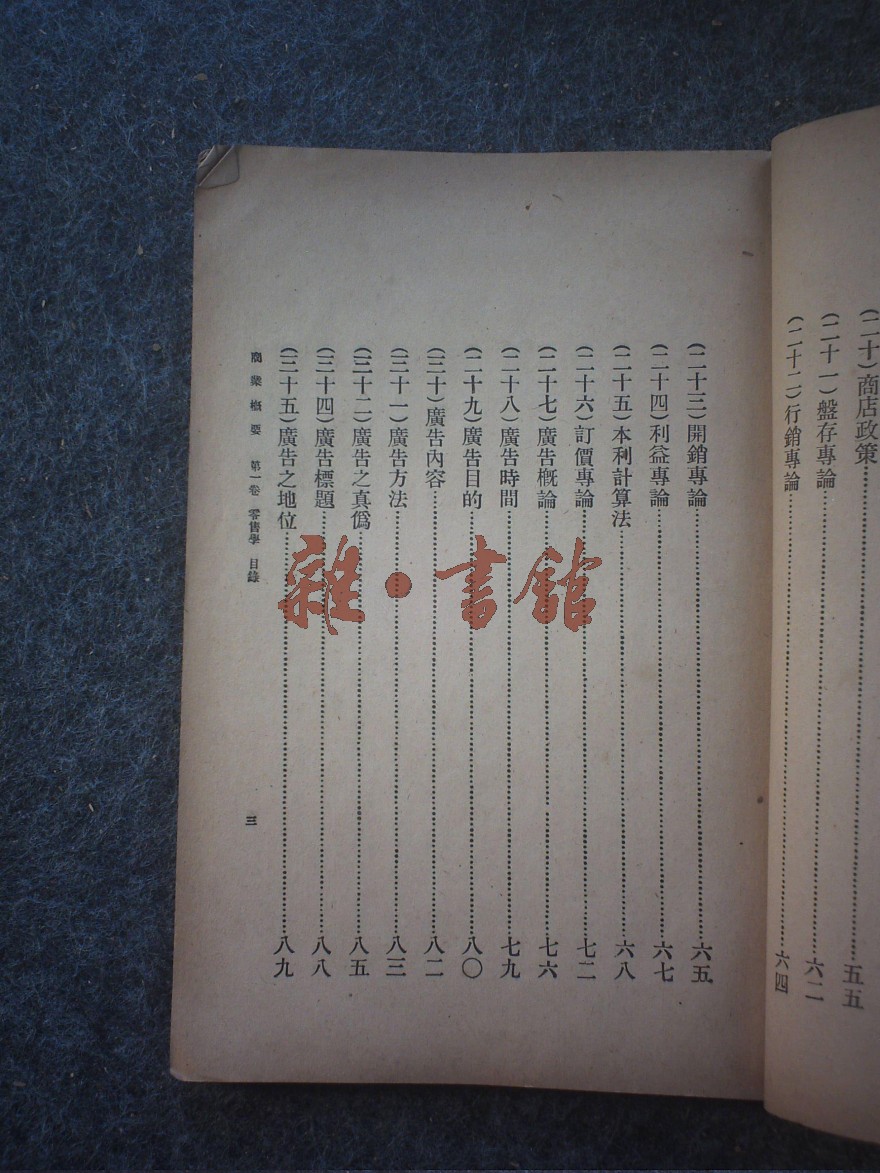 (二十)商店政策……五五
(二十一)盤存專論……六二
(二十二)行銷專論……六四
(二十三)開銷專論……六五
(二十四)利益專論……六七
(二十五)本利計算法……六八
(二十六)訂價專論……七二
(二十七)廣告概論……七六
(二十八)廣告時間……七九
(二十九)廣告目的……八〇
(三十)廣告內容……八二
(三十一)廣告方法……八三
(三十二)廣告之真僞……八五
(三十四)廣告標題……八八
(三十五)廣告之地位……八九
商業概要 第一卷 零售學 目錄 三
雜·書館